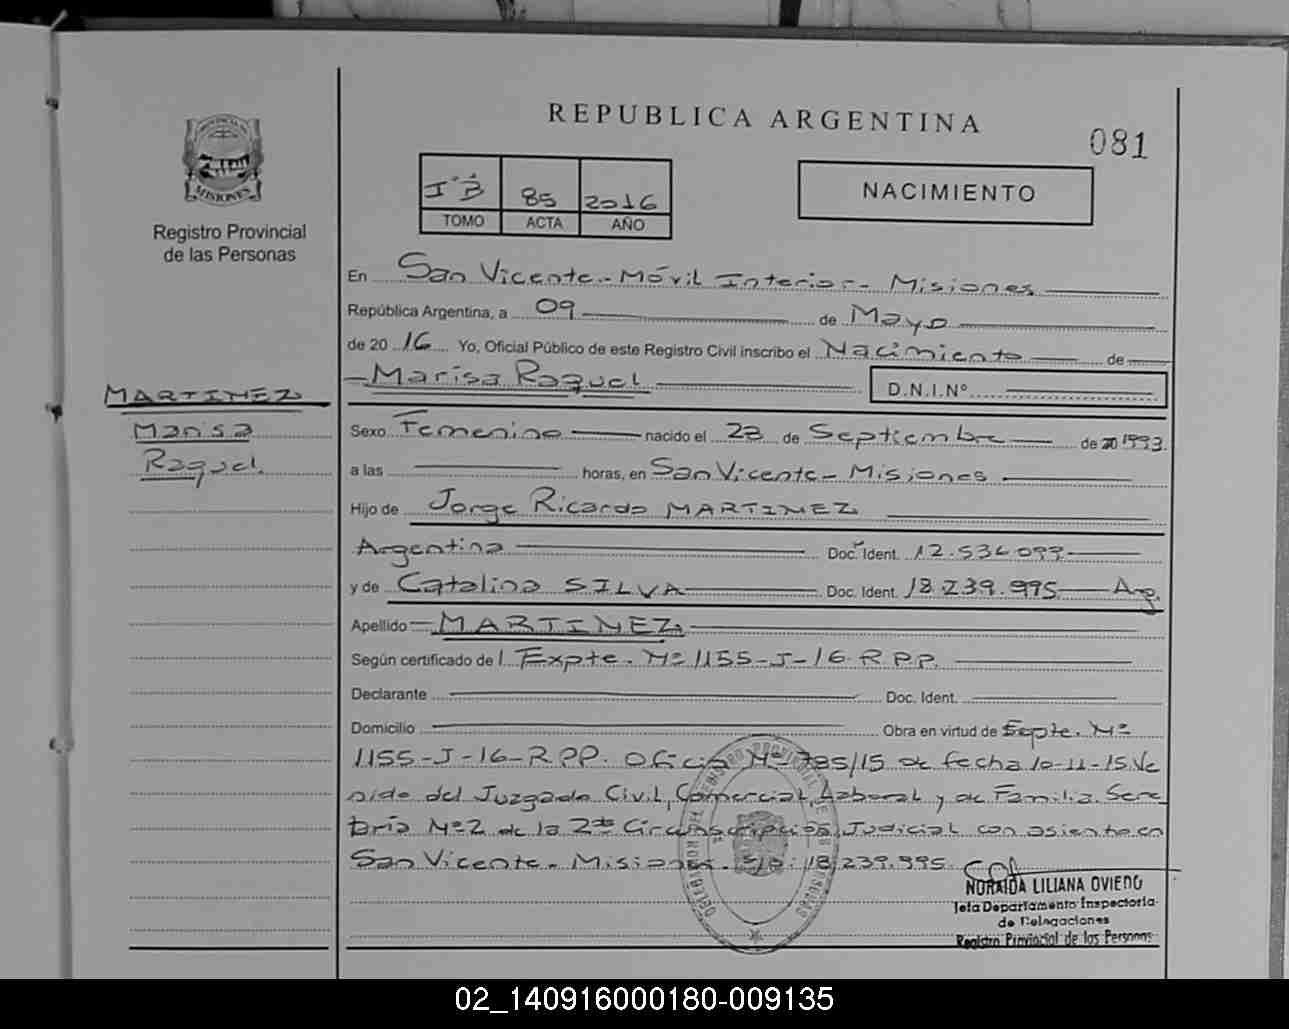 REPUBLICA ARGENTINA
081
PROVINCIA DE
MISIONES
Registro Provincial
de las Personas
I°B 85 2016
TOMO ACTA AÑO
NACIMIENTO
En San Vicente.- Móvil Interior- Misiones
República Argentina, a 09 de Mayo
de 20 16 Yo, Oficial Público de este Registro Civil inscribo el Nacimiento de
Marisa Raquel D.N.I.Nº
MARTINEZ
Marisa
Raquel.
Sexo Femenino nacido el de Septiembre de 20 1993.
a las horas, en San Vicente- Misiones
Hijo de Jorge Ricardo MARTINEZ
Argentina Doc. Ident. 12.536.099
y de Catalina SILVA Doc. Ident. 18.239.995 Arg.
Apellido MARTINEZ
Según certificado de l Expte. Nº 1155-J-16-R.P.P.
Declarante Doc. Ident.
Domicilio Obra en virtud de Expte. Nº
1155-J-16-R.P.P. Oficio Nº 785/15 de fecha 10-11-15. Ve
nido del Juzgado Civil, Comercial, Laboral y de Familia. Secre
taría Nº2 de la 2da Circunscripción Judicial con asiento en
San Vicente- Misiones. 18.239.995.
NORAIDA LILIANA OVIEDO
Jefa Departamento Inspectoria
de Delegaciones
Registro Provincial de las Personas
02_140916000180-009135